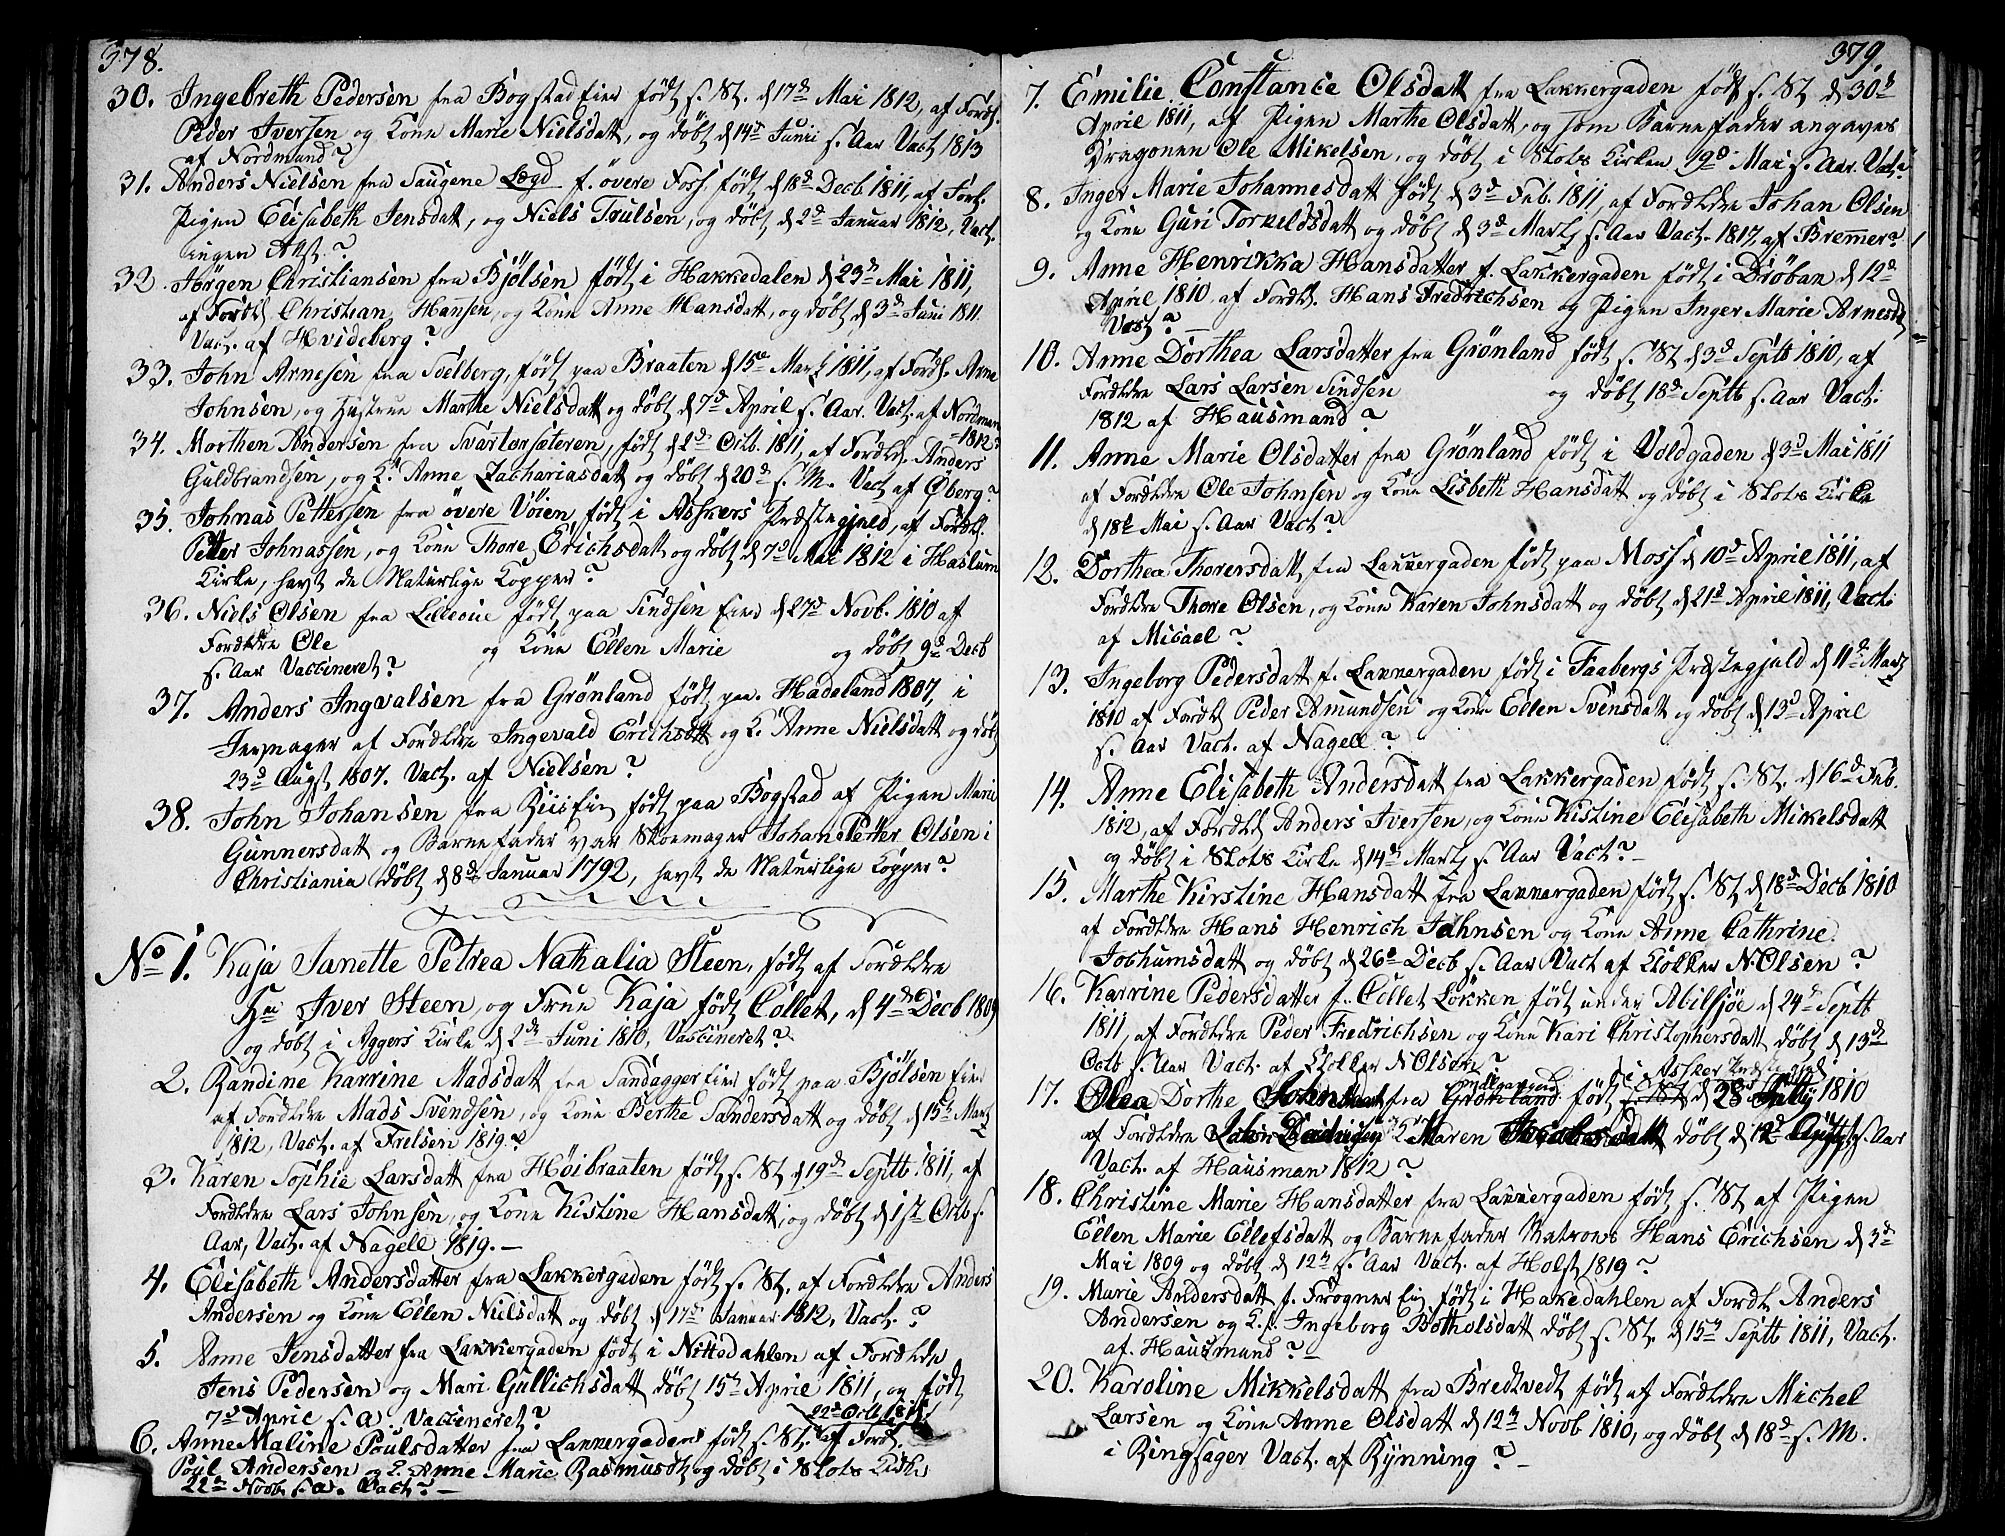 378.
30. Ingebreth Pedersen fra Bogstad Eier født s. St. d 17de Mai 1812, af Fordl.
Peder Iversen og Kone Marie Nielsdatt, og døbt d 14de Junii s. Aar Vact 1813
af Nordmand?
31. Anders Nielsen fra Saugene Lægd f. øvere Foss. født d 18de Decb 1811, af Forl.
Pigen Elisabeth Jensdatt, og Niels Poulsen, og døbt d 2de Januar 1812, Vact.
ingen Att.?
32. Jørgen Christiansen fra Bjølsen født i Hakkedalen d 23de Mai 1811,
af Fordl Christian Hansen, og Kone Anne Hansdatt, og døbt d 3de Juni 1811.
Vact. af Hvideberg?
33. John Arnesen fra Solberg, født paa Braaten d 15de Martz 1811, af Fordl. Arne
Johnsen, og Hustrue Marthe Nielsdatt og døbt d 7de April s. Aar. Vact. af Nordman
1812?
34. Morthen Andersen fra Svartorsæteren, født d 2de Octb. 1811, af Fordld. Anders
Guldbrandsen, og K. Anne Zachariasdatt og døbt d 20de s. M. Vact af Øberg?
35. Johnas Pettersen fra øvere Vøien født i Askers Præstegjeld, af Fordl.
Petter Johnassen, og Kone Thore Erichsdatt og døbt d 7de Mai 1812 i Haslum
Kirke, havt de Naturlige Kopper?
36. Niels Olsen fra Lilleeie født paa Sindsen Eier d 27de Novb. 1810 af
Fordldre Ole og Kone Ellen Marie og døbt 9de Decb
s. Aar Vaccineret?
37. Anders Ingvalsen fra Grönland født paa Hadeland 1807, i
Jevnager af Fordldre Ingevald Erichsdtt og K. Anne Nielsdatt og døbt
23de Augst 1807. Vact. af Nielsen?
38. John Johansen fra Riis Eie født paa Bogstad af Pigen Marie
Gunnersdatt og Barnefader var Skoemager Johan Petter Olsen i
Christiania døbt d 8de Januar 1792, havt de Naturlige Kopper?
No 1. Kaja Janette Petrea Nathalia Steen, født af Fordldre
Hr Iver Steen, og Frue Kaja født Collet, d 4de Decb 1809
og døbt i Aggers Kirke d 2de Juni 1810, Vaccineret?
2. Randine Karrine Madsdatt fra Sandagger Eier født paa Bjölsen Eier
af Fordldre Mads Svendsen, og Kone Berthe Sandersdatt og døbt d 15de Martz
1812, Vact. af Frelsen 1819?
3. Karen Sophie Larsdatt fra Høibraaten født s. St d 19de Septb. 1811, af
Fordldre Lars Johnsen, og Kone Kistine Hansdatt, og døbt d 1st Octb s.
Aar, Vact. af Nagell 1819.
4. Elisabeth Andersdatter fra Lakkergaden født s. St. af Fordldre Anders
Andersen og Kone Ellen Nielsdatt og døbt d 17de Januar 1812, Vact.?
5. Anne Jensdatter fra Lakkergaden født i Nittedahlen af Fordldre
Jens Pedersen og Mari Gullichsdatt døbt 15de Aprie 1811, og født
7de Aprie s. a. Vaccineret?
22de Oct 1811
6. Anne Maline Poulsdatter fra Lakkergaden født s. St. af Fordl.
Poul Andersen og K. Anne Marie Rasmusdt og døbt i Slots Kirke
22de Novb s. a. Vact?
379.
7. Emilie Constance Olsdatt fra Lakkergaden født s. St d 30te
April 1811, af Pigen Marthe Olsdatt, og som Barnefader angaves
Dragonen Ole Mikelsen, og døbt i Slots Kirken 19de Mai s. Aar Vact.?
8. Inger Marie Johannesdatt født d 3de Feb. 1811, af Fordldre Johan Olsen
og Kone Guri Torkeldsdatt og døbt d 3de Martz s. Aar Vact. 1817, af Bremer?
9. Anne Henrikka Hansdatter f. Lakkergaden født i Drøbak d 12de
April 1810 af Fordld. Hans Fredrichsen og Pigen Inger Marie Arnesd,
Vact?
10. Anne Dorthea Larsdatter fra Grönland født s. St d 3de Septb 1810, af
Fordldre Lars Larsen Sindsen og døbt 18de Septb s. Aar Vact.
1812 af Hausmand?
11. Anne Marie Olsdatter fra Grönland født i Voldgaden d 3de Mai 1811
af Fordldre Ole Johnsen og Kone Lisbeth Hansdatt og døbt i Slots Kirke
d 18de Mai s. Aar Vact?
12. Dorthea Thorersdatt fra Lakkergaden født paa Moss d 10de April 1811, af
Fordldre Thore Olsen, og Kone Karen Johnsdatt og døbt d 21de April 1811, Vact.
af Micael?
13. Ingeborg Pedersdatt f. Lakkergaden født i Faabergs Præstegjeld d 11de Martz
1810 af Fordld Peder Amundsen og Kone Ellen Svensdatt og døbt d 13de April
s. Aar Vact. af Nagell?
14. Anne Elisabeth Andersdatt fra Lakkergaden født s. St. d 16de Feb.
1812, af Fordld Anders Iversen, og Kone Kistine Elisabeth Mikkelsdatt
og døbt i Slots Kirke d 14de Martz s. Aar Vact?
15. Marthe Kirstine Hansdatt fra Lakkergaden født s. St d 18de Decb 1810
af Fordldre Hans Henrich Johnsen og Kone Anne Cathrine
Jochumsdatt og døbt d 26de Decb s. Aar Vact af Klokker N Olsen?
16. Karrine Pedersdatter f. Collet Løkken født under Abilsjøe d 24de Septb
1811, af Fordldre Peder Fredrichsen og Kone Kari Christophersdatt døbt d 13de
Octb s. Aar Vact. af Klokker N Olsen?
i Asker Præstegjeld
17. Olea Dorthe fra Grönland født s. St d 28 1810
af Fordldre K Maren døbt d 12de s. Aar
Vact. af Hausman 1812?
18. Christine Marie Hansdatter fra Lakkergaden født s. St af Pigen
Ellen Marie Ellefsdatt og Barnefader Matroes Hans Erichsen d 3de
Mai 1809 og døbt d 12te s. Aar Vact. af Holst 1819?
19. Marie Andersdatt f. Frogner Eie født i Hakedahlen af Fordl. Anders
Andersen og K. Ingeborg Botholsdatt døbt s. St. d 15de Septb 1811, Vact.
af Hausmand?
20. Karoline Mikkelsdatt fra Bredtvedt født af Fordldre Michel
Larsen og Kone Anne Olsdatt d 12te Novb 1810, og døbt d 18de s. M.
i Ringsager Vact. af Rynning?